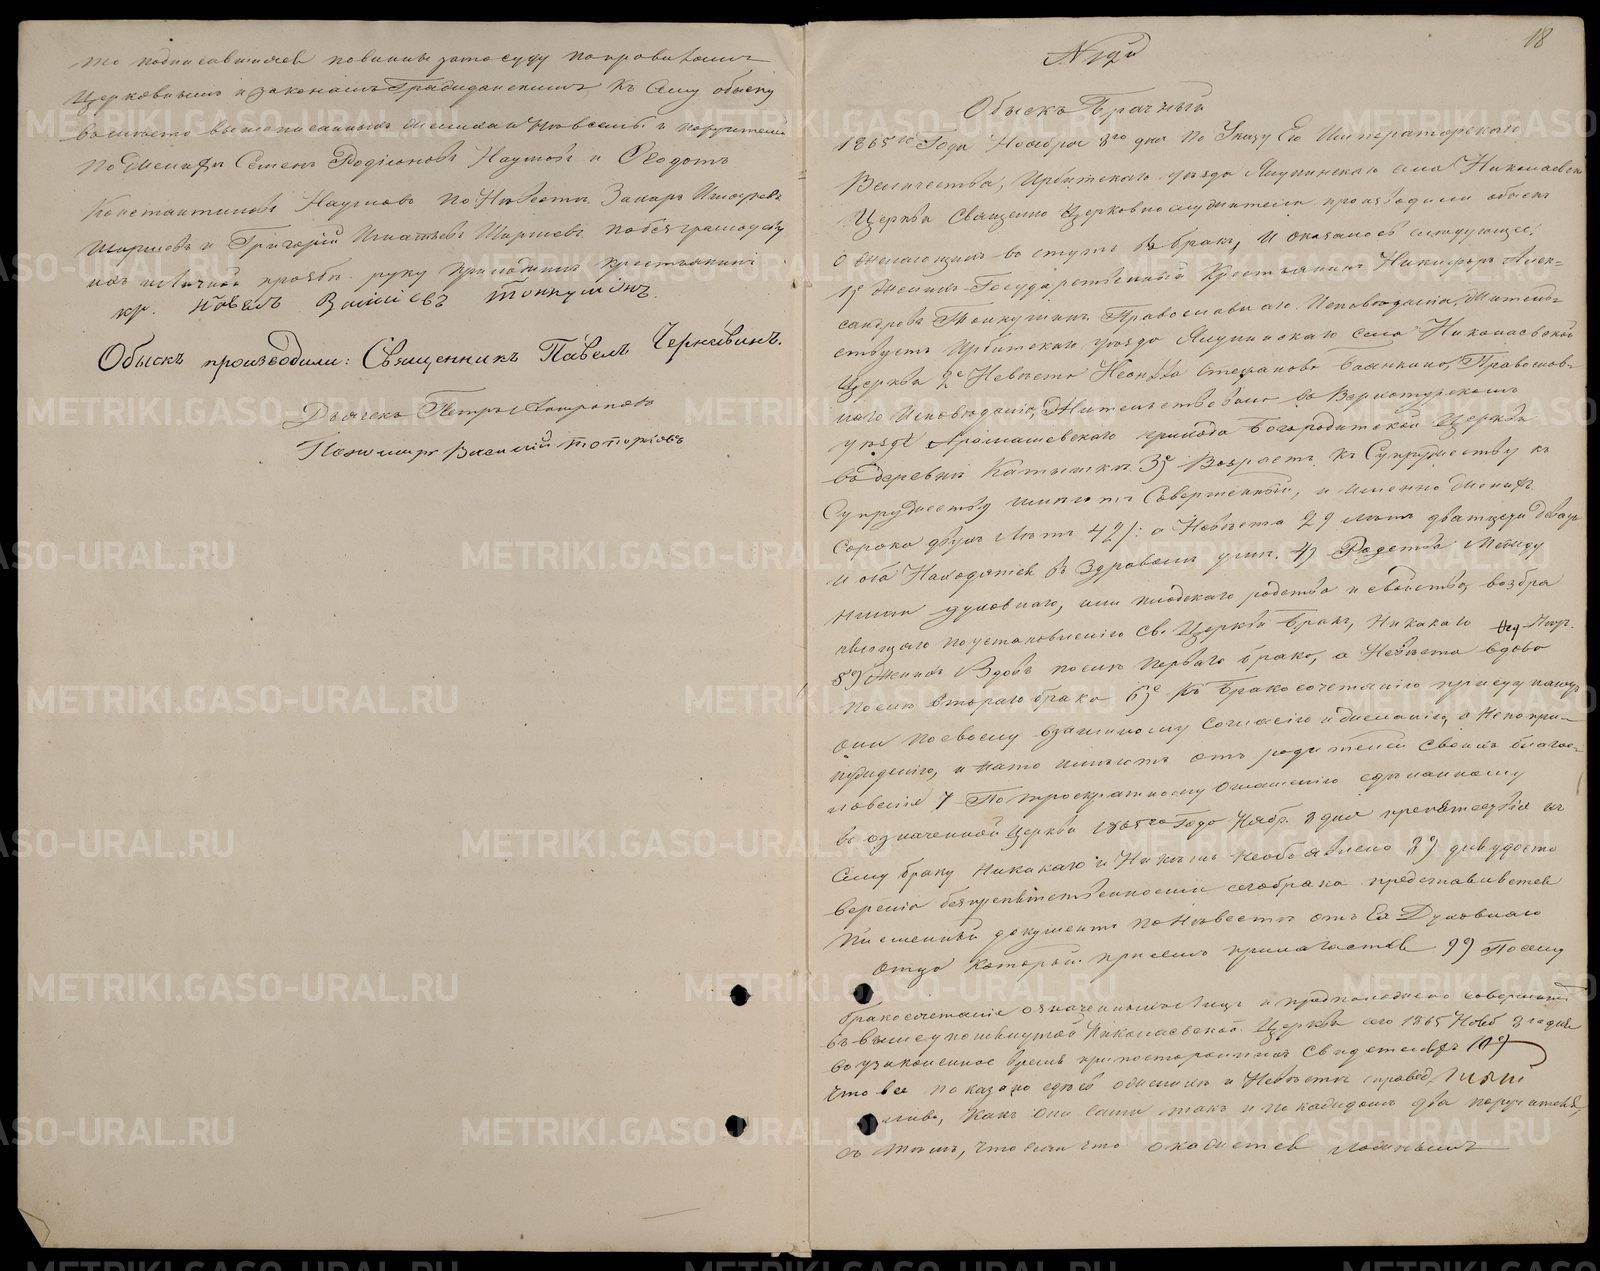 то подписавшиеся повинны затосуду поправиламъ
Церковнымъ и законамъ Гражданскимъ. Къ Сему обыску
вместо вышеписанныхъ жениха и Невесты и поручителей
по Женихѣ Семенъ Родіоновъ Наумовъ и Ѳедотъ
Константиновъ Наумовъ по Невестѣ Захаръ
Ширшевъ и Григорій Игнатьевъ Ширшевъ. побезграмотству
ихъ и личной прозбѣ руку приложилъ крестьянинъ
кр. Павелъ Тонкушинъ.
Обыскъ производили: Священникъ Павелъ Чернавинъ.
Дьячекъ Петръ
Пономарь Василій Топорковъ
18
Обыскъ Брачный
1865го Года Ноября 8го дня По Указу Его Императорскаго
Величества, Ирбитскаго уѣзда села Николаевской
Церкви Священно Церковнослужители производили обыскъ
о желающихъ вступить въ бракъ, и оказалось слѣдующее:
1е Женихъ Государственный Крестьянинъ Никифоръ Алек-
сандровъ Тонкушинъ Православнаго Исповѣданія, Житель-
ствуетъ Ирбитскаго уѣзда села Николаевской
Церкви 2е Невѣста Степанова Православ-
наго Исповѣданія, Жительствовала въ Верхотурскомъ
уѣздѣ Арамашевскаго прихода Богородитской Церкви
въ деревни 3е Возрастъ къ Супружеству къ
Супружеству имѣютъ Совершенный, и именно Женихъ
Сорока двухъ Лѣтъ 42/: а Невѣста 29 лѣтъ дватцети девяти
и оба Находятся въ Здравомъ умѣ. 4) Родства Между
ними духовнаго, или плодскаго родства и свойства, возбра
няющаго поустановленію Св. Церкви бракъ, Никакаго Нѣтъ.
5е) Женихъ Вдовъ послѣ перваго брака, а Невѣста вдова
послѣ втораго брака 6)е Къ Бракосочетанію приступаютъ
Они посвоему взаимному Согласію и желанію, а Непопри-
нужденію, и нато имѣютъ отъ родителей Своихъ благос-
ловеніе 7 По троекратному Оглашенію сдѣланному
въ означенной Церкви 1865го Года Ноябр. 8 дня препятствія къ
Сему браку Никакаго и Никѣмъ необъявлено 8) дляудосто
веренія безпрепятственности сегобрака представляется
письменный документъ по Невестѣ отъ Ея Духовнаго
Отца который присемъ прилагается 9) Посему
бракосочетаніе означенныхъ Лицъ и предположено совершить
въ вышеупомянутой Николаевской Церкви сего 1865 Нояб 8го дня
въ узаконенное время при постороннихъ Свидетеляхъ 10)
Что все показано здѣсь о женихѣ и Невѣстѣ справед
ливо, какъ Они сами такъ и по каждомъ два поручателя,
съ тѣмъ, что если что окажется ложнымъ